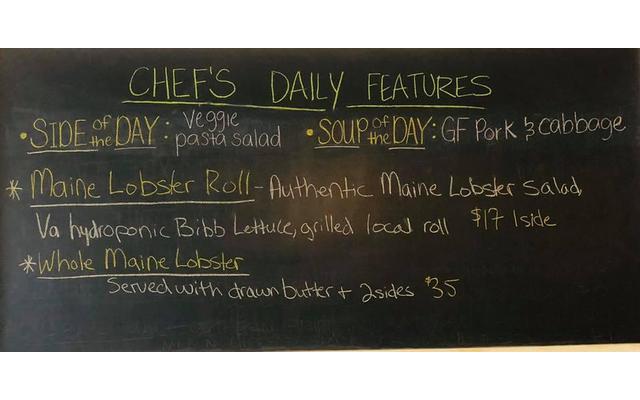 CHEF'S DAILY FEATURES
• SIDE of the DAY: Veggie pasta salad • SOUP of the DAY: GF Pork & cabbage
* Maine Lobster Roll - Authentic Maine Lobster Salad,
Va hydroponic Bibb Lettuce, grilled local roll $17 1side
* Whole Maine Lobster
Served with drawn butter + 2sides $35